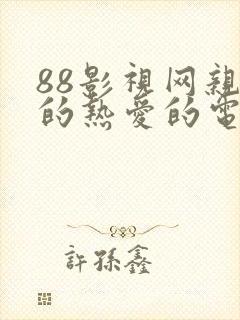 88影視网親
的热爱的電
許孫鑫